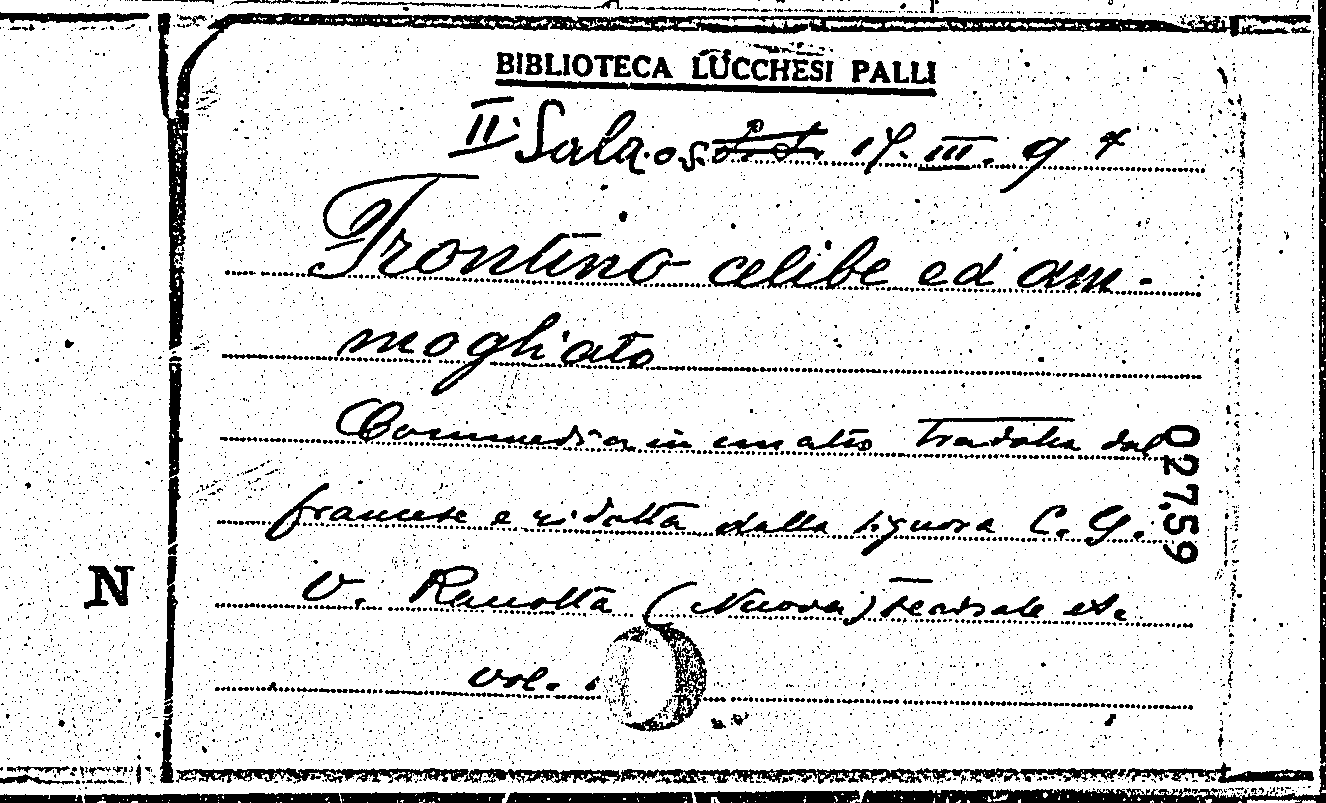 BIBLIOTECA LUCCHESI PALLI
II Sala 17. III. 9
Frontino celibe ed am-
mogliato
Commedia in un atto tradotta dal
francese e ridotta dalla signora C. G.
V. Raccolta (Nuova) teatrale etc.
vol.
02759
N